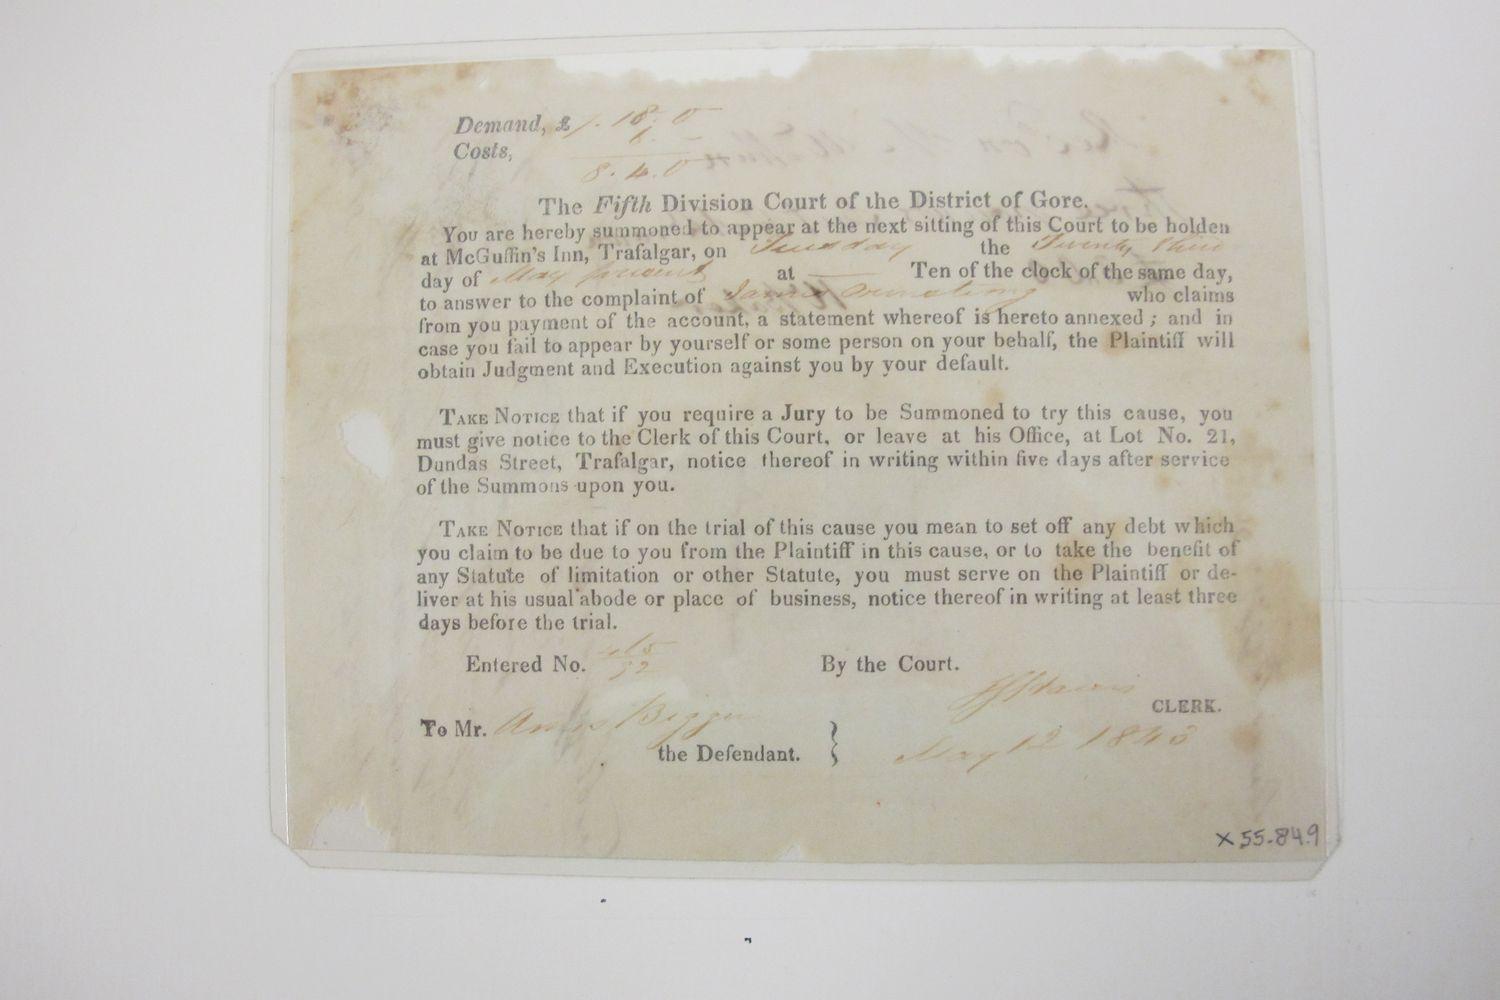 Demand, £ 7. 18. 0
Costs, 6. –
8. 4. 0
The Fifth Division Court of the District of Gore.
You are hereby summoned to appear at the next sitting of this Court to be holden
at McGuffin's Inn, Trafalgar, on Tuesday the Twenty third
day of May present at — Ten of the clock of the same day,
to answer to the complaint of James Armstrong who claims
from you payment of the account, a statement whereof is hereto annexed; and in
case you fail to appear by yourself or some person on your behalf, the Plaintiff will
obtain Judgment and Execution against you by your default.
TAKE NOTICE that if you require a Jury to be Summoned to try this cause, you
must give notice to the Clerk of this Court, or leave at his Office, at Lot No. 21,
Dundas Street, Trafalgar, notice thereof in writing within five days after service
of the Summons upon you.
TAKE NOTICE that if on the trial of this cause you mean to set off any debt which
you claim to be due to you from the Plaintiff in this cause, or to take the benefit of
any Statute of limitation or other Statute, you must serve on the Plaintiff or de-
liver at his usual abode or place of business, notice thereof in writing at least three
days before the trial.
Entered No. By the Court.
CLERK.
To Mr. Amos Biggar
the Defendant. } May 12 1843
X55.84.9